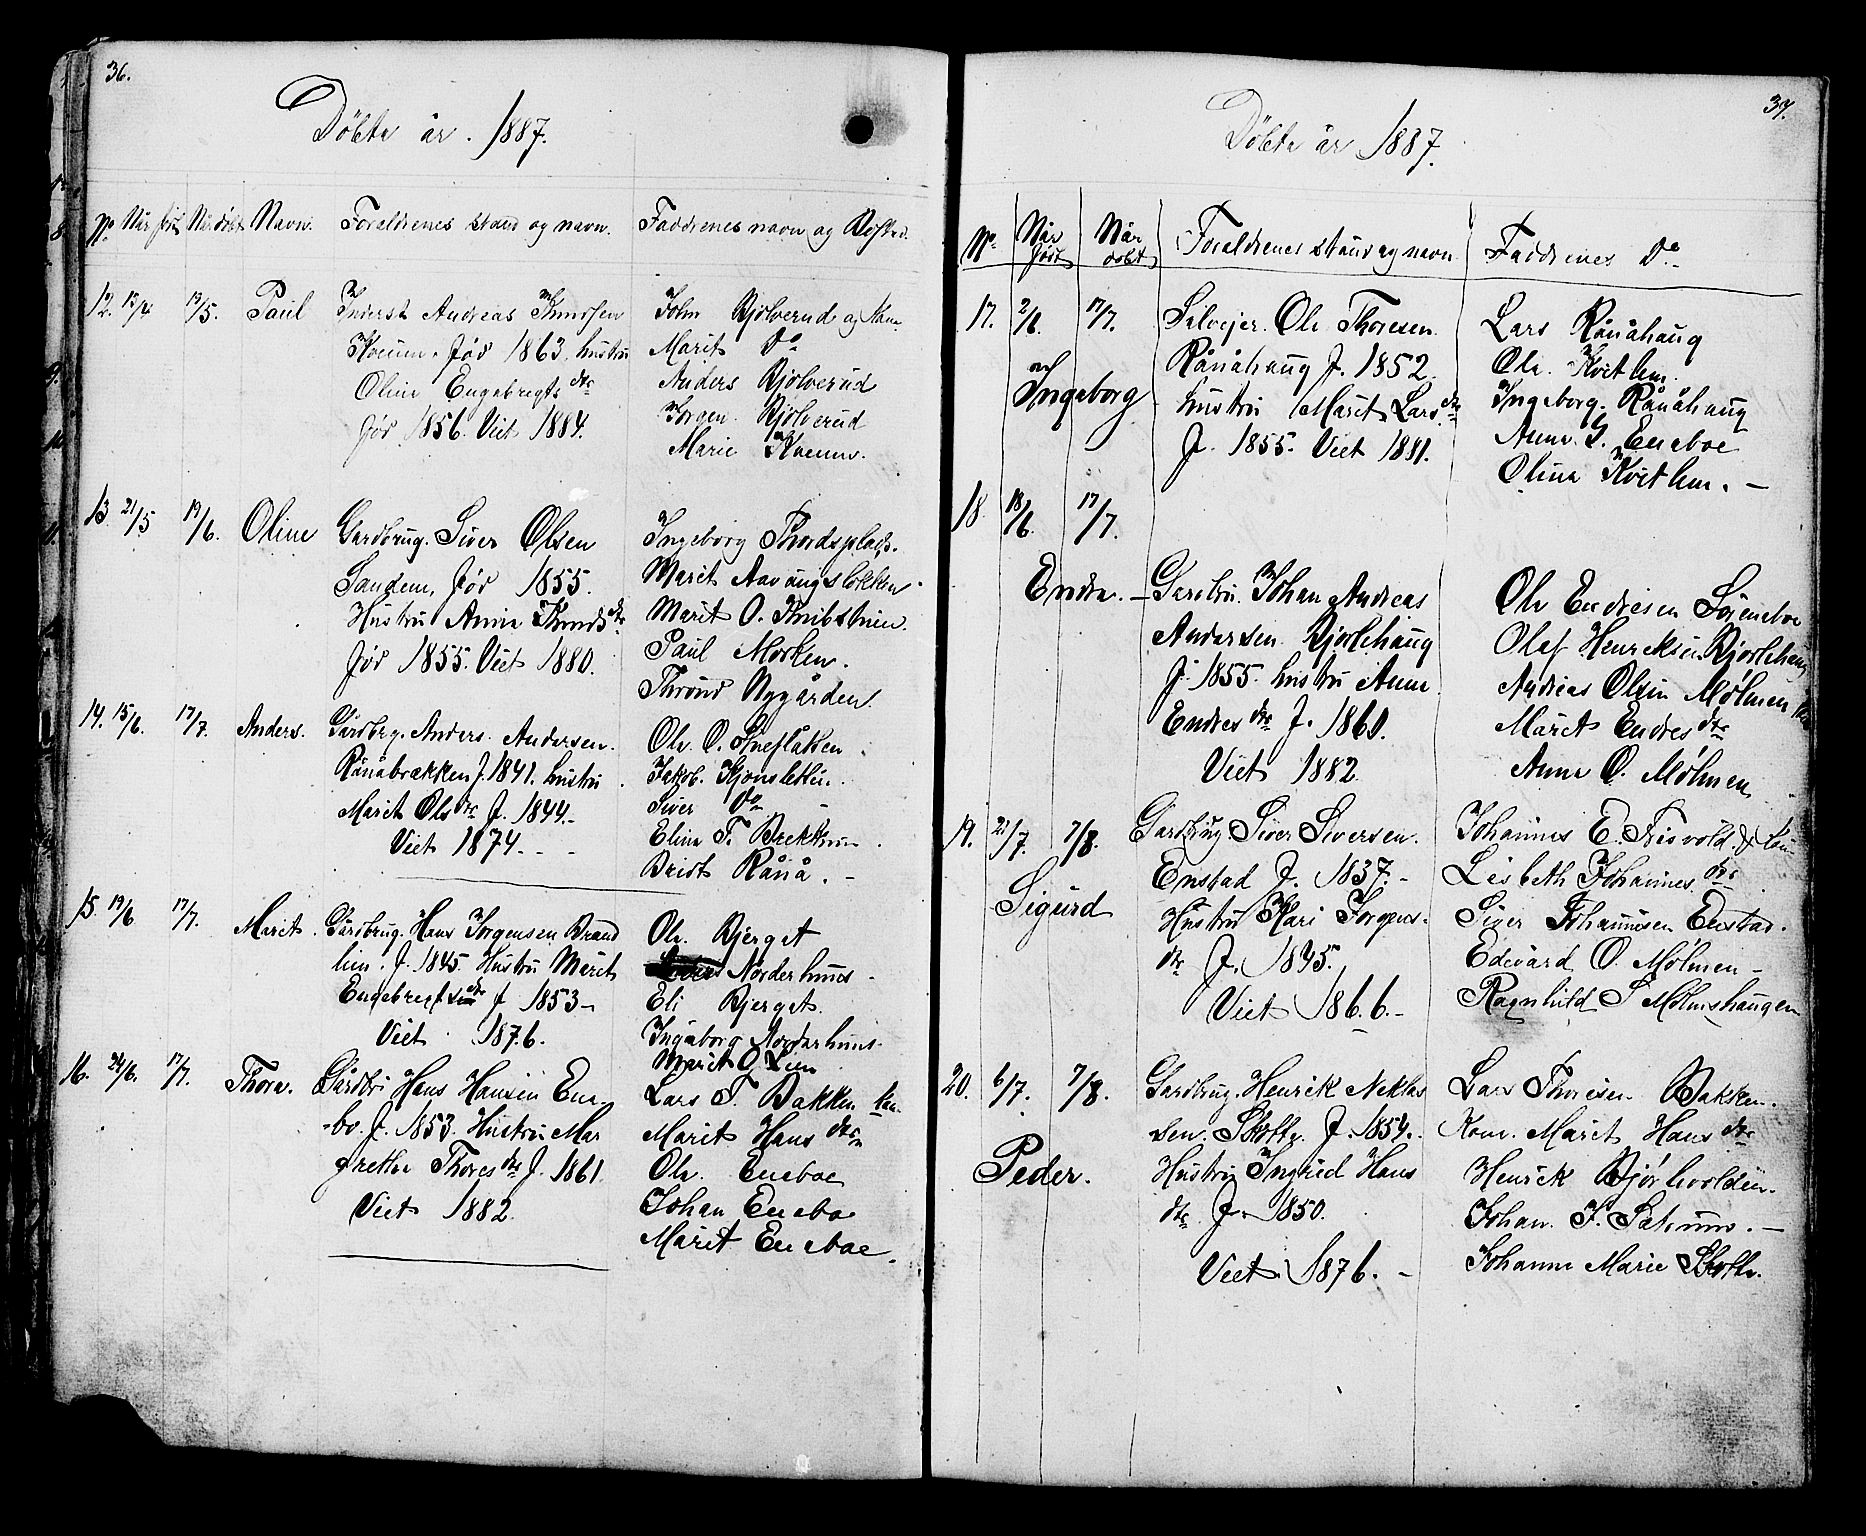 36.
Döbte år. 1887.
No Når født Når döbt Navn. Foreldrenes stand og navn. Faddrenes navn og Bosted.
12. 13/4 13/5. Paul Inderst Andreas Knudsen
Kvam. föd 1863. hustru
Oline Engebregts dtr
föd 1856. Viet 1884.
John Bjölverud og Kone
Marit Do
Anders Bjölverud
Jörgen Bjölverud
Marie Kvam.
13. 21/5 19/6. Oline Gardbrug. Siver Olsen
Sandem, föd 1855.
Hustru Anne Knuds dtr
föd 1855. Viet 1880.
Ingeborg Thordsplads.
Marit Aavangslökken.
Marit O. Knibstuen.
Paul Morken.
Thrond Nygården.
14. 15/6. 17/7. Anders. Gårdbrg. Anders Andersen.
Rånåbrækken f. 1841. hustru
Marit Ols dtr f. 1844.
Viet 1874. - -
Ole O.
Jakob.
Siver Do
Eline T. Brekken
Rånå. -
15. 19/6 17/7. Marit. Gårdbrug. Hans Jörgensen Brand
lien. f. 1845. Hustru Marit
Engebregts dtr f 1853 -
Viet 1876.
Ole Bjerget
Nörderhuus -
Eli Bjerget.
Ingeborg Norderhuus.
Marit O Lien
16. 24/6. 17/7. Thora. Gårdbr Hans Hansen Ene
-bo. f. 1853. Hustru Mar
grethe Thores dtr f. 1861.
Viet 1882.
Lars T. Bakken kon.
Marit Hans dtr
Ole Eneboe
Johan Enebo
Marit Eneboe.
37.
Döbte år 1887.
No. Når født Når döbt Foreldrenes stand og navn Faddrenes Do
17. 2/6. 17/7. Ingeborg
Selvejer. Ole Thoresen.
Rånåhaug f. 1852.
hustru Marit Lars dtr
f. 1855. Viet 1881.
Lars Rånåhaug
Ole Kvithem.
Ingeborg. Rånåhaug
Anne. Eneboe
Oline Kvithem. -
18. 18/6. 17/7.
Endre. - Gardbr. Johan Andreas
Andersen Bjorlihaug
f. 1855. hustru Anne
Endres dtr f. 1860.
Viet 1882.
Ole Endresen Söreneboe
Olaf Henriksen Bjorlihaug
Andreas Olsen Mölmen
Marit Endres dtr
Anne O. Mölmen
19. 21/7. 7/8. Sigurd
Gardbrug. Siver Siversen.
Enstad f. 1837. -
Hustru Kari Jörgens.
dtr f. 1845.
Viet 1866. -
Johannes E.
Lisbeth Johannes. dtr
Siver Johannesen Enstad.
Edevard O. Mölmen -
Ragnhild S Mölmshaugen
20. 6/7. 7/8. Peder.
Gardbrug. Henrik Neklas
sen. Skotte. f. 1854.
Hustru Ingrid Hans
dtr f. 1850.
Viet 1876. -
Lars Thoresen Bakken.
Kone. Marit Hans dtr
Henrik Bjørkvolden.
Johan. -
Johanne Marie Skotte.